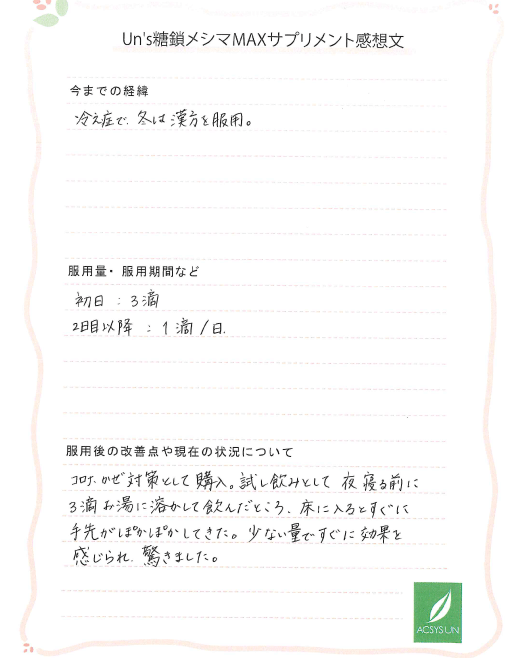 Un's糖鎖メシマMAXサプリメント感想文
今までの経緯
冷え症で、冬は漢方を服用。
服用量・服用期間など
初日：3滴
2日目以降：1滴/日.
服用後の改善点や現在の状況について
コロナ、かぜ対策として購入。試し飲みとして夜寝る前に
3滴お湯に溶かして飲んだところ、床に入るとすぐに
手先がぽかぽかしてきた。少ない量ですぐに効果を
感じられ、驚きました。
ACSYS UN